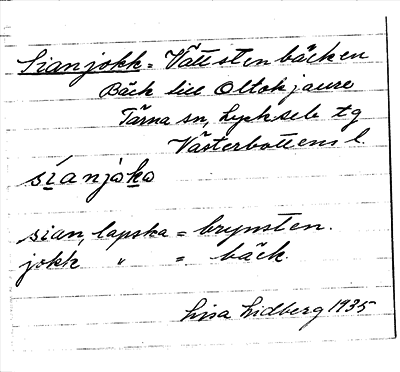 Sianjokk = Vättstenbäcken
Bäck till Oltokjaure
Tärna sn, Lycksele tg
Västerbottens l.
síanjoko
sian, lapska = brynsten.
jokk " = bäck
Lisa Lidberg 1935